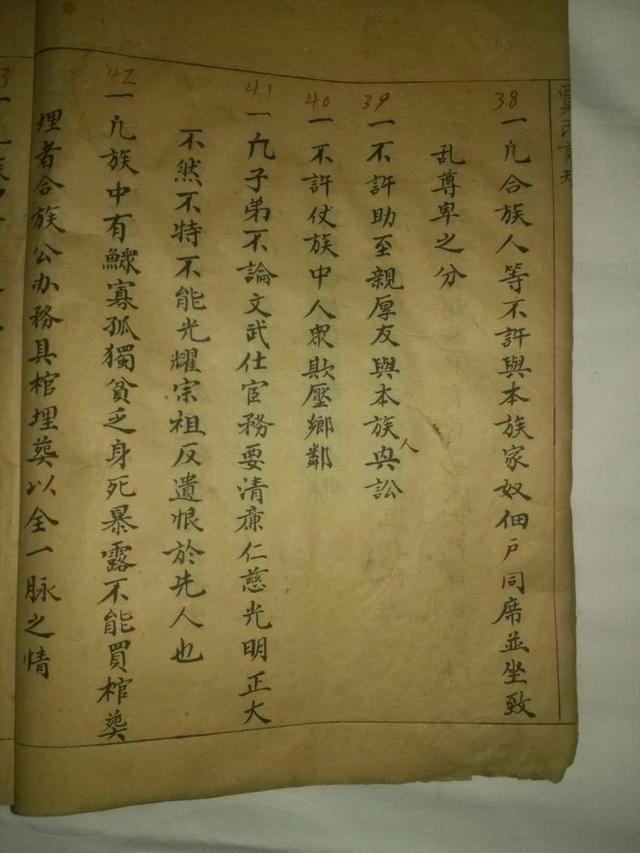 38 一凡合族人等不許與本族家奴佃户同席並坐致
乱尊卑之分
39 一不許助至親厚友與本族人與訟
40 一不許仗族中人眾欺壓鄉鄰
41 一凡子弟不論文武仕宦務要清亷仁慈光明正大
不然不特不能光耀宗祖反遺恨於先人也
42 一凡族中有鰥寡孤獨貧乏身死暴露不能買棺葬
埋者合族公办務具棺埋葬以全一脉之情